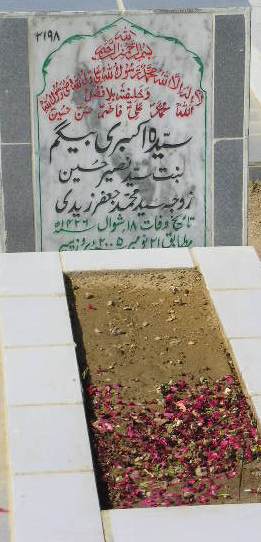 ۳۱۹۸
بسم اللہ الرحمن الرحیم
لا الہ الا اللہ محمد رسول اللہ علی ولی اللہ وصی رسول اللہ
و خلیفتہ بلا فصل
اللہ محمد علی فاطمہ حسن حسین
سیدہ اکبری بیگم
بنت سید نصیر حسین
زوجہ سید محمد جعفر زیدی
تاریخ وفات ۱۸ شوال ۱۴۲۶ھ
مطابق ۲۱ نومبر ۲۰۰۵ بروز پیر